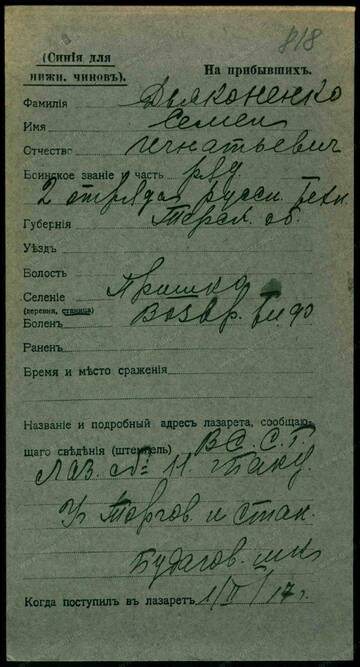 818
(Синія для
нижн. чиновъ).
На прибывшихъ.
Фамилія Дьяконенко
Имя Семен
Отчество Игнатьевич
Воинское званіе и часть ряд.
2 отряда русск.
Губернія Терск. об.
Уѣздъ
Волость
Селеніе
(деревня, станица)
Боленъ Возвр. тиф
Раненъ
Время и мѣсто сраженія
Названіе и подробный адресъ лазарета, сообщаю-
щаго свѣдѣнія (штемпель) В. С. С. Г.
Лаз. № 11. Баку.
Уг. Торгов. и Стан.
Будагов.
Когда поступилъ въ лазаретъ 1/II 17 г.